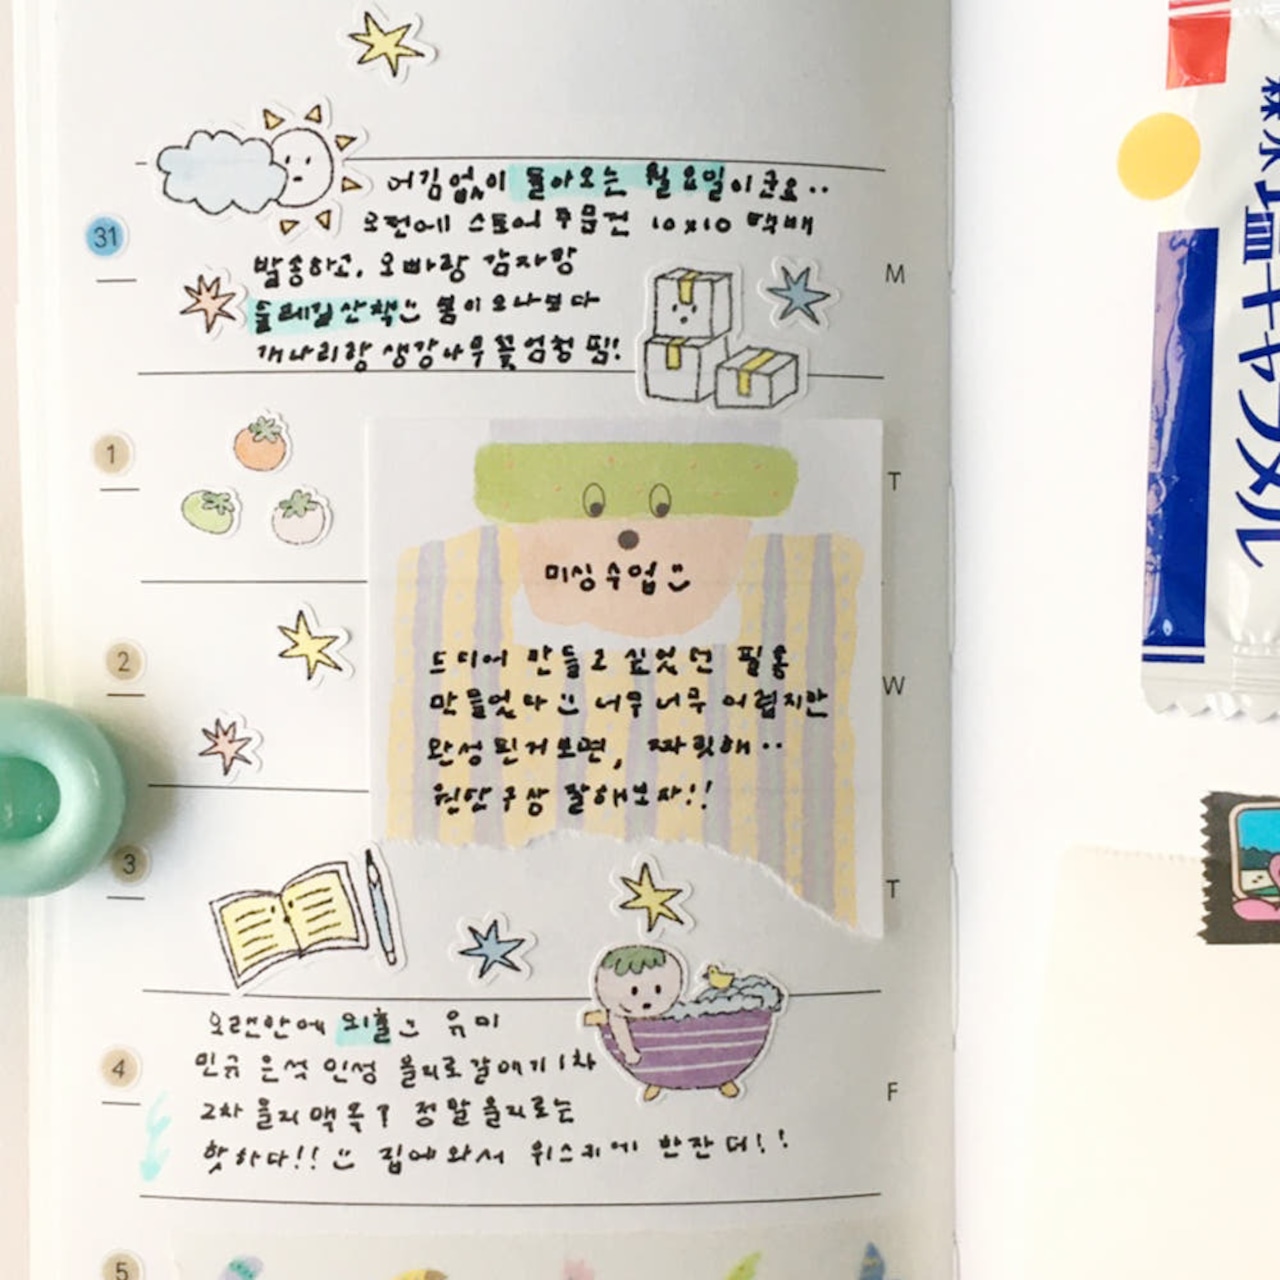 어김없이 돌아오는 월요일이군요..
31
오전에 스토어 주문건 10x10 택배
발송하고, 오빠랑 감자랑
M
둘레길산책 봄이오나보다
개나리랑 생강나무꽃 엄청 핌!
1
T
미싱수업
2
드디어 만들고 싶었던 필통
W
만들었다 너무너무 어렵지만
완성된거보면, 짜릿해..
원단구상 잘해보자!!
3
T
오랜만에 외출 유미
4
민규 은석 인성 을지로갈매기 1차
F
2차 을지맥옥? 정말 을지로는
핫하다!! 집에와서 위스키에 한잔 더!!
5
塩キャラメル